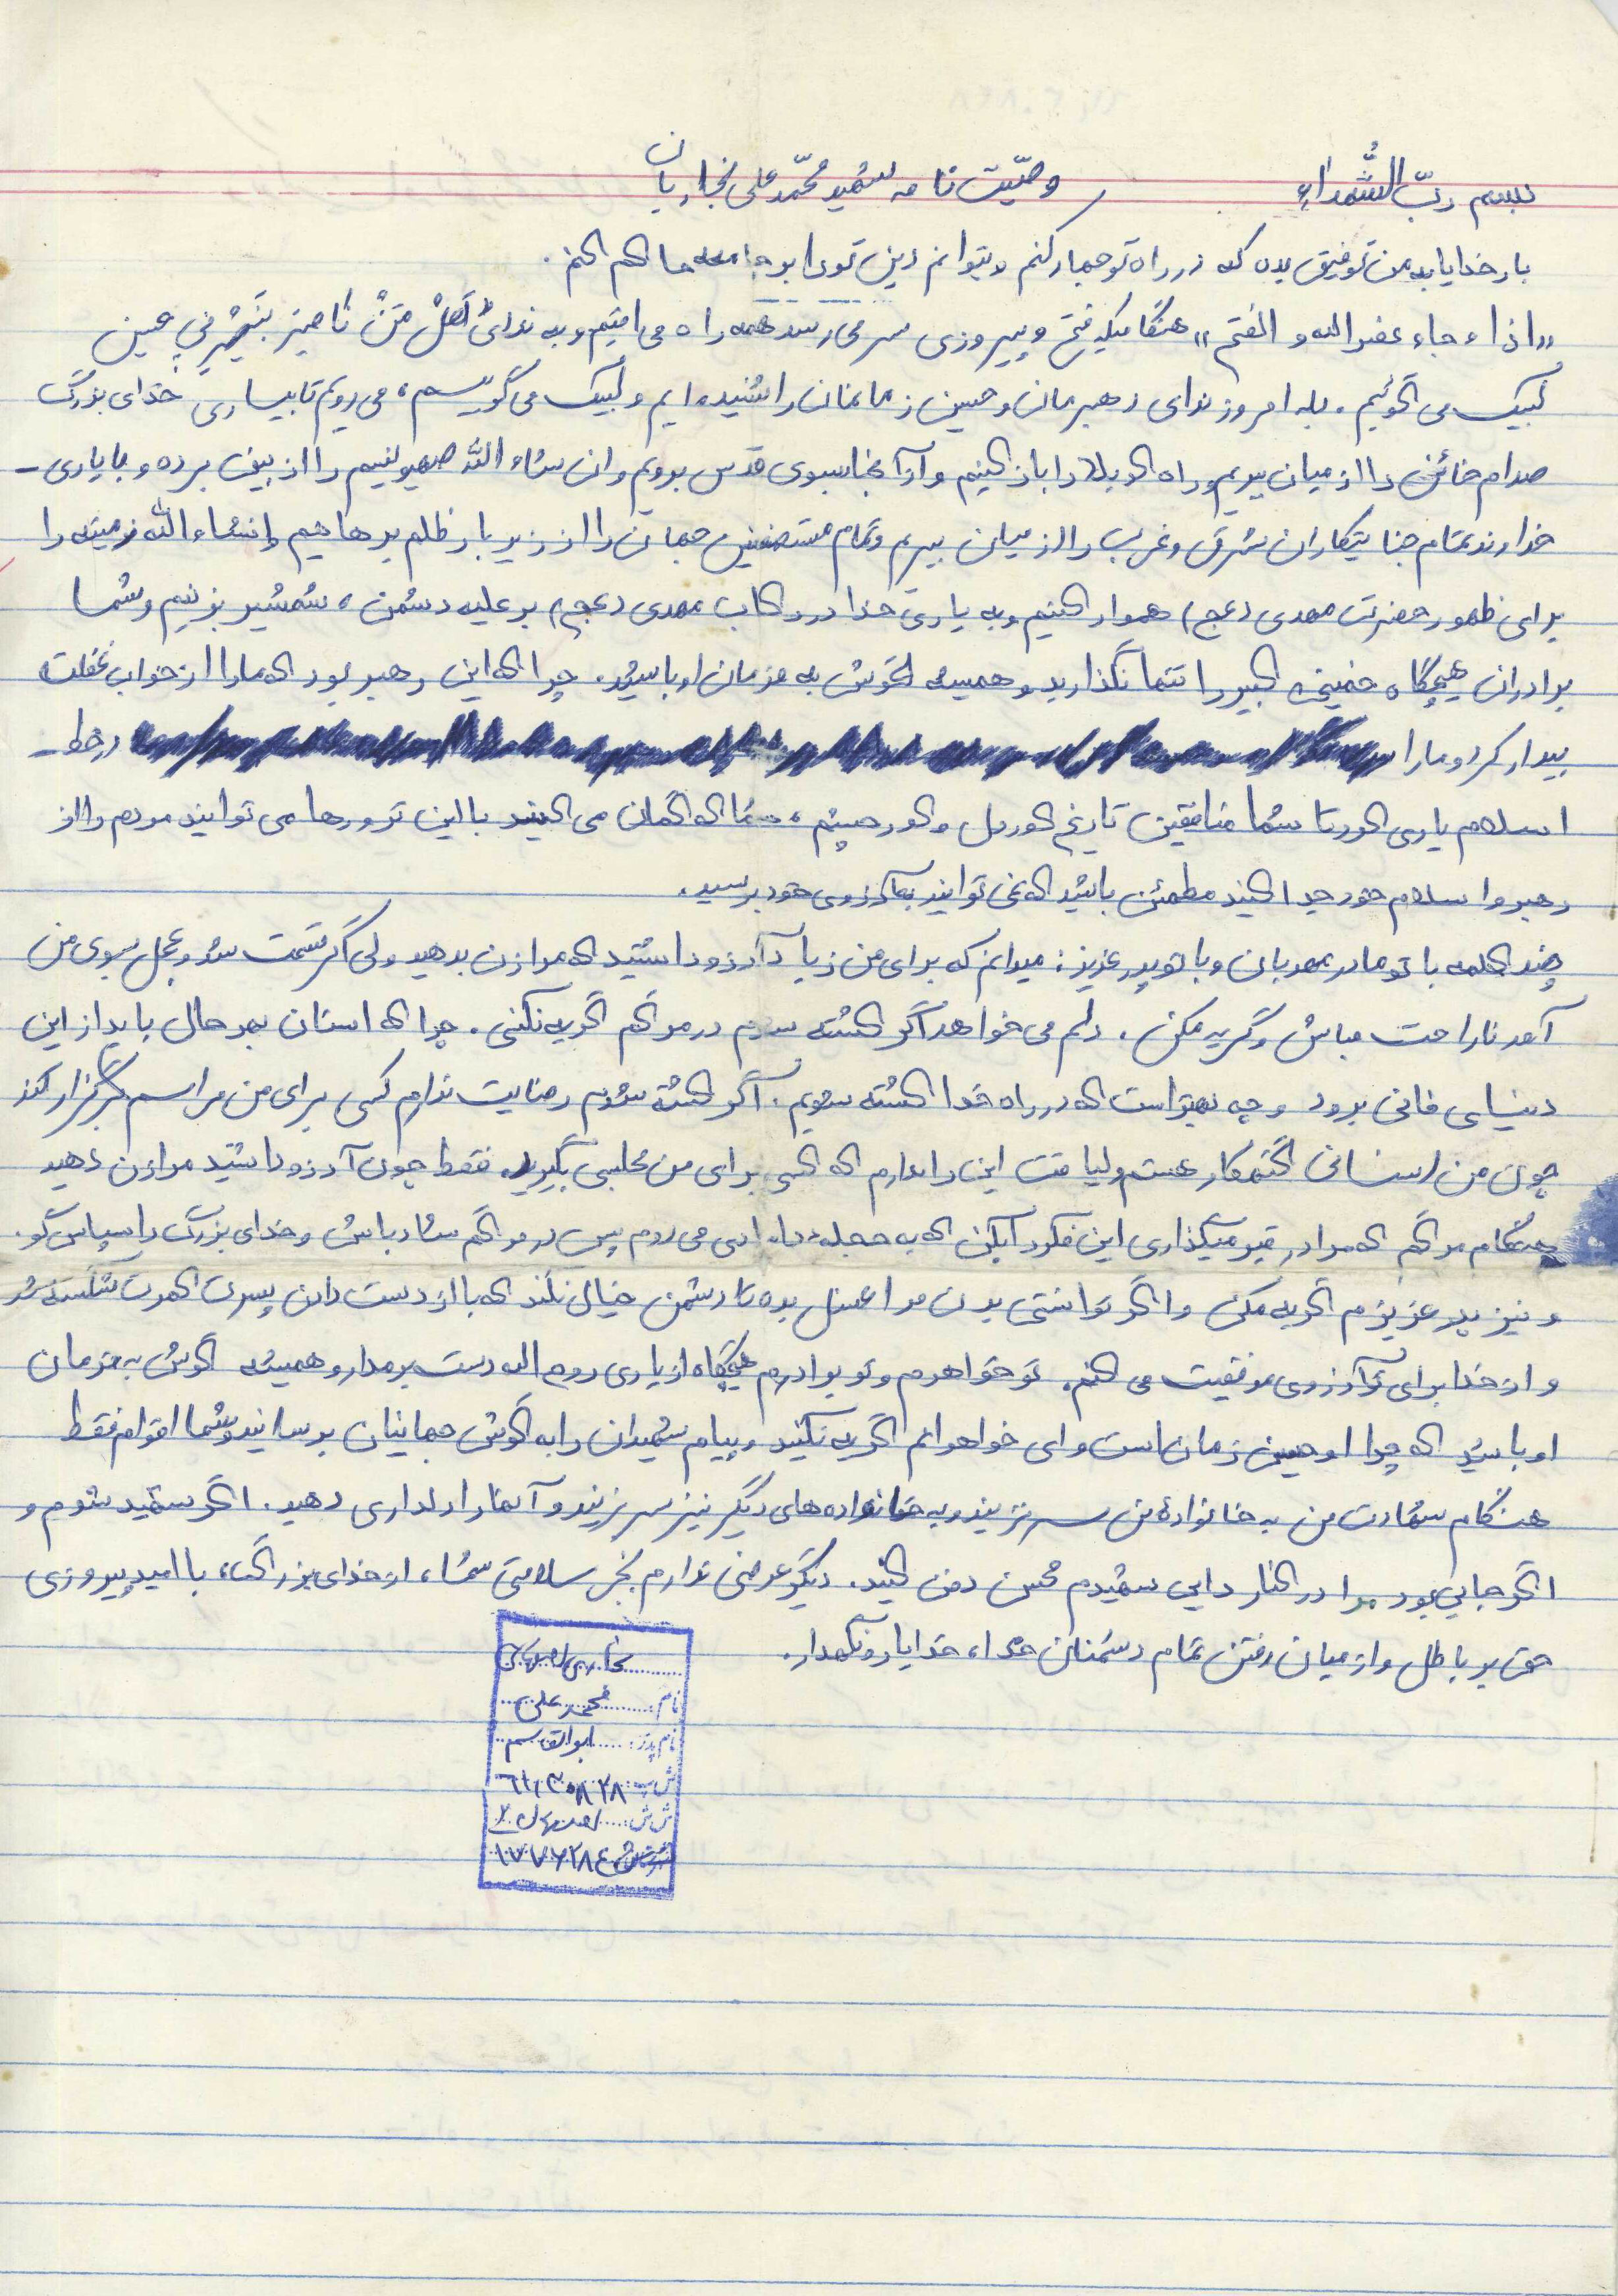 بسم ربّ الشُّهداءِ وصیّت نامه شهید محمّد علی نجاریان
بار خدایا به من توفیق بده که در راه تو جهاد کنم و بتوانم دین تو را بر جامعه حاکم کنم.
«اذا جاء نصر الله و الفتح» هنگامیکه فتح و پیروزی سر می رسد همه راه می افتیم و به ندای هَلْ مَنْ ناصِرٍ یَنْصُرنی حسین
لبیک می گوئیم. بله امروز ندای رهبرمان و حسین زمانمان را شنیده ایم و لبیک می گوییم، می رویم تا بیاری خدای بزرگ
صدام خائن را از میان ببریم و راه کربلا را باز کنیم و از آنجا بسوی قدس برویم و ان شاء الله صهیونیسم را از بین برده و با یاری
خداوند تمام جنایتکاران شرق و غرب را از میان ببریم و تمام مستضعفین جهان را از زیر بار ظلم برهانیم و انشاء الله زمینه را
برای ظهور حضرت مهدی (عج) هموار کنیم و به یاری خدا در رکاب مهدی (عج) بر علیه دشمن، شمشیر بزنیم و شما
برادران هیچگاه خمینی کبیر را تنها نگذارید و همیشه گوش به فرمان او باشید. چرا که این رهبر بود که ما را از خواب غفلت
بیدار کرد و ما را در خط
اسلام یاری کرد تا شما منافقین تاریخ کوردل و کور چشم، شما که گمان می کنید با این ترورها می توانید مردم را از
رهبر و اسلام خود جدا کنید مطمئن باشید که نمی توانید به آرزوی خود برسید.
چند کلمه با تو مادر مهربان و با تو پدر عزیز: میدانم که برای من زیاد آرزو داشتید که مرا زن بدهید ولی اگر قسمت شد و عجل بسوی من
آمد ناراحت مباش و گریه مکن. دلم می خواهد اگر کشته شدم در مرگم گریه نکنی. چرا که انسان بهر حال باید از این
دنیای فانی برود و چه بهتر است که در راه خدا کشته شویم. اگر کشته شوم رضایت ندارم کسی برای من مراسم برگزار کند
چون من انسانی گنهکار هستم و لیاقت این را ندارم که کسی برای من مجلسی بگیرد. فقط چون آرزو داشتید مرا زن دهید
هنگام مرگم که مرا در قبر میگذاری این فکر را بکن که به حجله دامادی می روم پس در مرگم شاد باش و خدای بزرگ را سپاس گو.
و نیز پدر عزیزم گریه مکن و اگر توانستی بدن مرا غسل بده تا دشمن خیال نکند که با از دست دادن پسرت کمرت شکسته شد
و از خدا برای تو آرزوی موفقیت می کنم. تو خواهرم و تو برادرم هیچگاه از یاری روح الله دست برمدار و همیشه گوش به فرمان
او باشید که چرا او حسین زمان است و ای خواهرانم گریه نکنید و پیام شهیدان را به گوش جهانیان برسانید و شما اقوام فقط
هنگام شهادت من به خانوادهٔ من سر نزنید و به خانواده های دیگر نیز سر بزنید و آنها را دلداری دهید. اگر شهید شدم و
اگر جایی بود مرا در کنار دایی شهیدم محسن دفن کنید. دیگر عرضی ندارم بجز سلامتی شما، از خدای بزرگ، با امید پیروزی
حق بر باطل و از میان رفتن تمام دشمنان خدا، خدا یار و نگهدار.
نام: محمد علی
نام پدر: ابوالقاسم
ش پ: ۶۱۱۳۰۸۲۸
ش ش:
۱۷۷۶۲۸۴